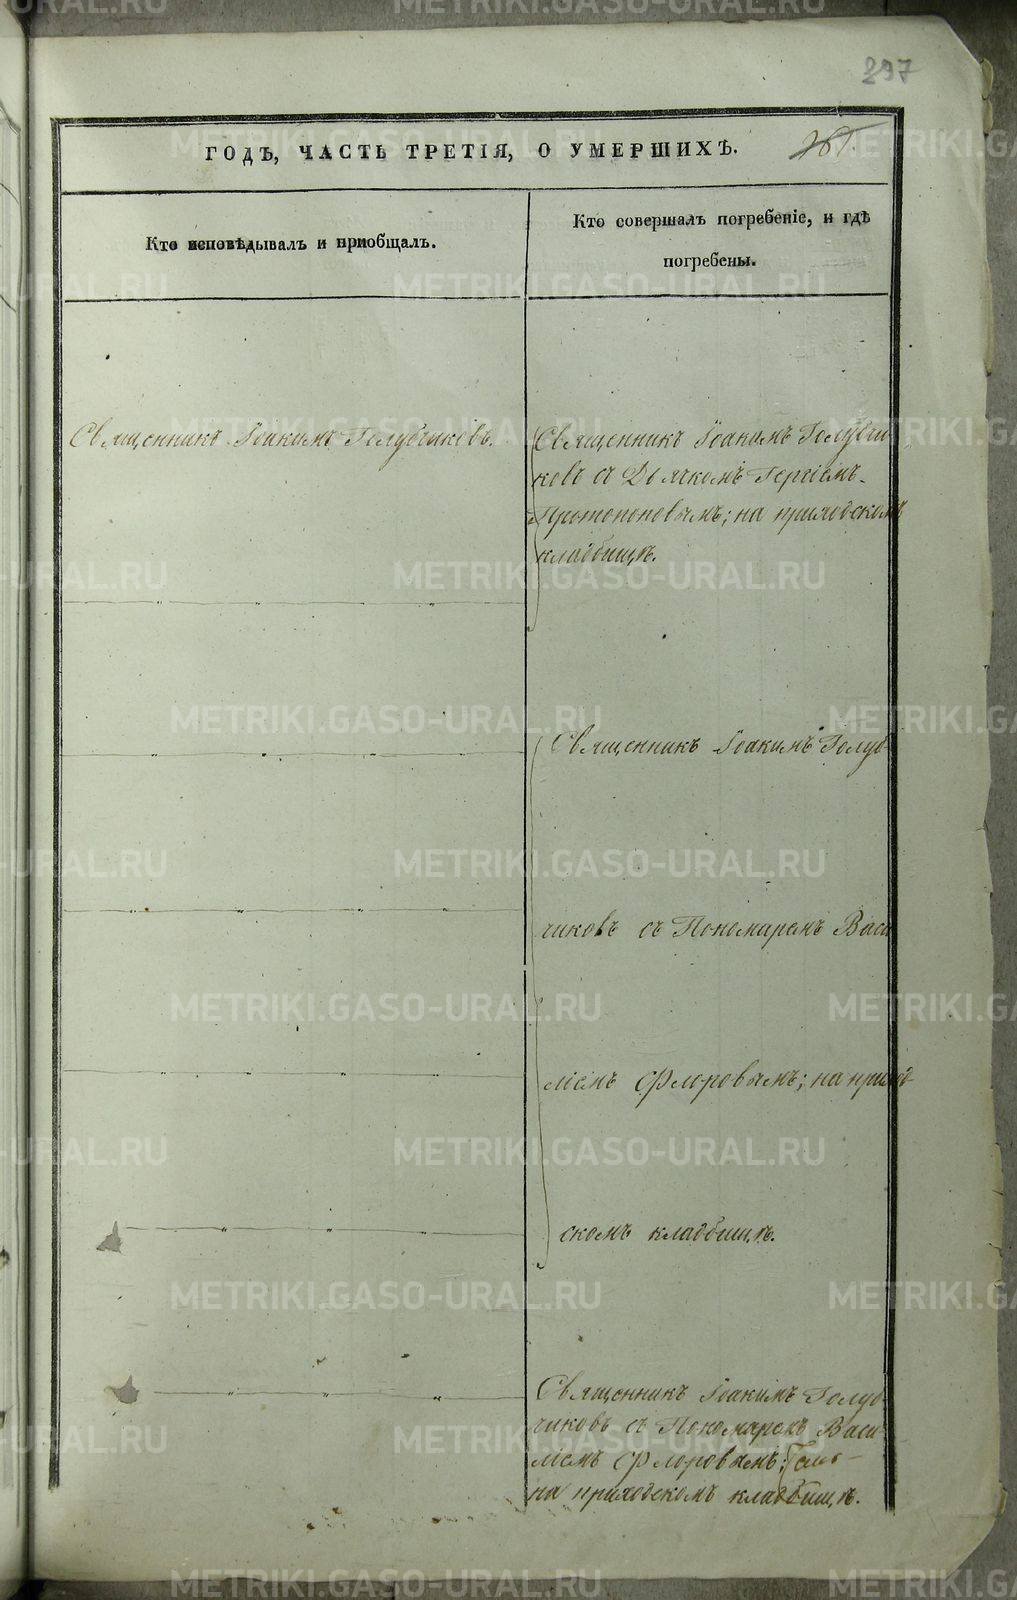 297
ГОДЪ, ЧАСТЬ ТРЕТІЯ, О УМЕРШИХЪ.
Кто исповѣдывалъ и пріобщалъ.
Кто совершалъ погребеніе, и гдѣ
погребены.
Священникъ Іоакимъ Голубчиковъ.
Священникъ Іоакимъ Голубчи-
ковъ съ Дьячкомъ Гергіемъ
Протопоповымъ; на приходскомъ
кладбищѣ.
Священникъ Іоакимъ Голуб-
чиковъ съ Пономаремъ Васи
ліемъ Флоровымъ; на приход-
скомъ кладбищѣ.
Священникъ Іоакимъ Голуб-
чиковъ съ Пономаремъ Васи-
ліемъ Флоровымъ;
на приходскомъ кладбищѣ.
METRIKI.GASO-URAL.RU